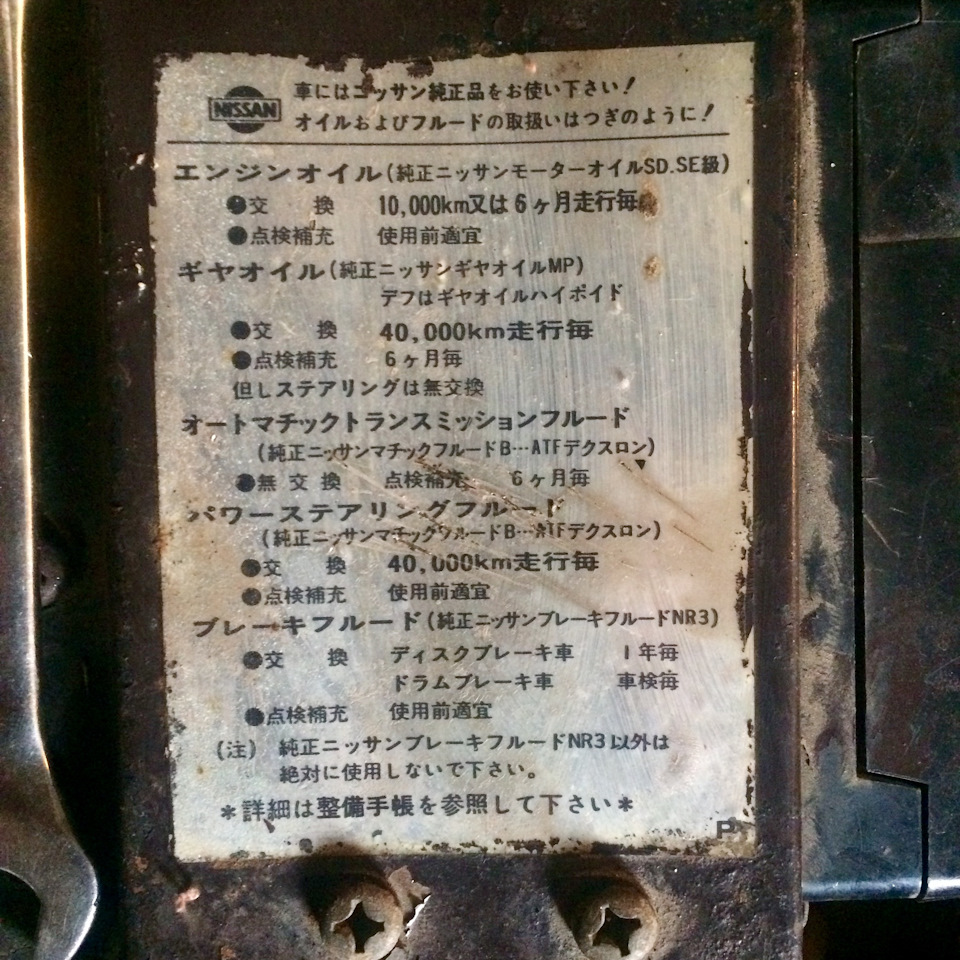 NISSAN
車にはニッサン純正品をお使い下さい!
オイルおよびフルードの取扱いはつぎのように!
エンジンオイル(純正ニッサンモーターオイルSD.SE級)
●交 換 10,000km又は6ヶ月走行毎
●点検補充 使用前適宜
ギヤオイル(純正ニッサンギヤオイルMP)
デフはギヤオイルハイポイド
●交 換 40,000km走行毎
●点検補充 6ヶ月毎
但しステアリングは無交換
オートマチックトランスミッションフルード
(純正ニッサンマチックフルードB…ATFデクスロン)
●無交換 点検補充 6ヶ月毎
パワーステアリングフルード
(純正ニッサンマチックフルードB…ATFデクスロン)
●交 換 40,000km走行毎
●点検補充 使用前適宜
ブレーキフルード(純正ニッサンブレーキフルードNR3)
●交 換 ディスクブレーキ車 1年毎
ドラムブレーキ車 車検毎
●点検補充 使用前適宜
(注) 純正ニッサンブレーキフルードNR3以外は
絶対に使用しないで下さい。
*詳細は整備手帳を参照して下さい*
P